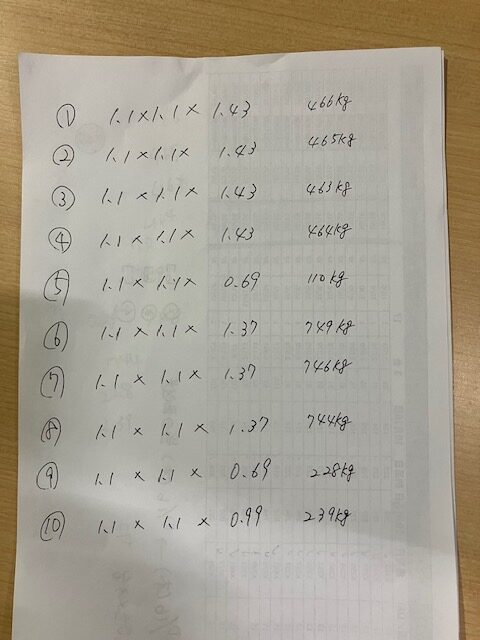 ① 1.1×1.1× 1.43 466kg
② 1.1×1.1× 1.43 465kg
③ 1.1 × 1.1 × 1.43 463kg
④ 1.1 × 1.1 × 1.43 464kg
⑤ 1.1 × 1.1× 0.69 110kg
⑥ 1.1 × 1.1 × 1.37 749kg
⑦ 1.1 × 1.1 × 1.37 746kg
⑧ 1.1 × 1.1 × 1.37 744kg
⑨ 1.1 × 1.1 × 0.69 228kg
⑩ 1.1 × 1.1 × 0.99 239kg